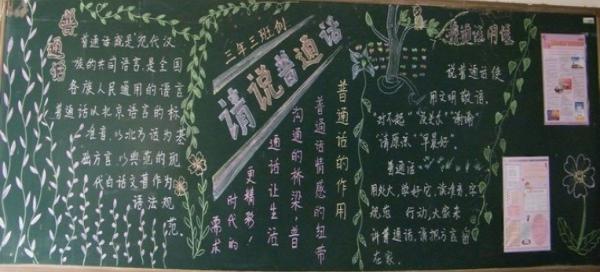 普通话
普通话就是现代汉
族的共同语言,是全国
各族人民通用的语言
普通话以北京语言的标
准音,以北方话为基
础方言,以典范的现
代白话文著作为
语法规
范。
三年三班创
请说普通话
普通话的作用
普通话情感的纽带
沟通的桥梁普
通话让生活
更精彩!
时代的
需求
普通话用语
说普通话使
用文明敬语。
"对不起""没关系""谢谢"
"请原谅""早晨好"。
普通话
用处大,学好它
规范 行动,大家来
讲普通话,请把方言留
在家。